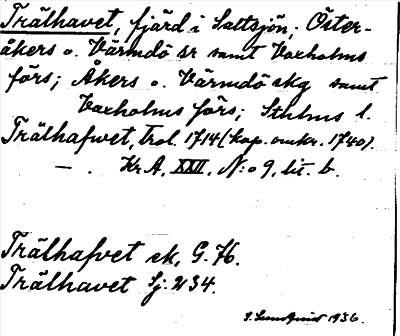 Trälhavet, fjärd i Saltsjön, Öster-
åkers o. Värmdö sr samt Vaxholms
förs; Åkers o. Värmdö skg samt
Vaxholms förs; Sthlms l.
Trälhafwet, trol. 1714 (kop. omkr. 1740).
— . Kr. A, XXII, N:o 9, lit. b.
Trälhafvet ek, G. 76.
Trälhavet Sj. 234.
1936.